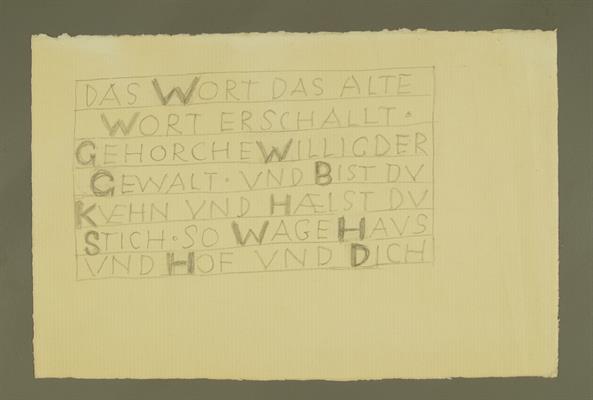 DAS WORT DAS ALTE
WORT ERSCHALLT ·
GEHORCHE WILLIG DER
GEWALT · VND BIST DV
KVEHN VND HÆLST DV
STICH · SO WAGE HAVS
VND HOF VND DICH